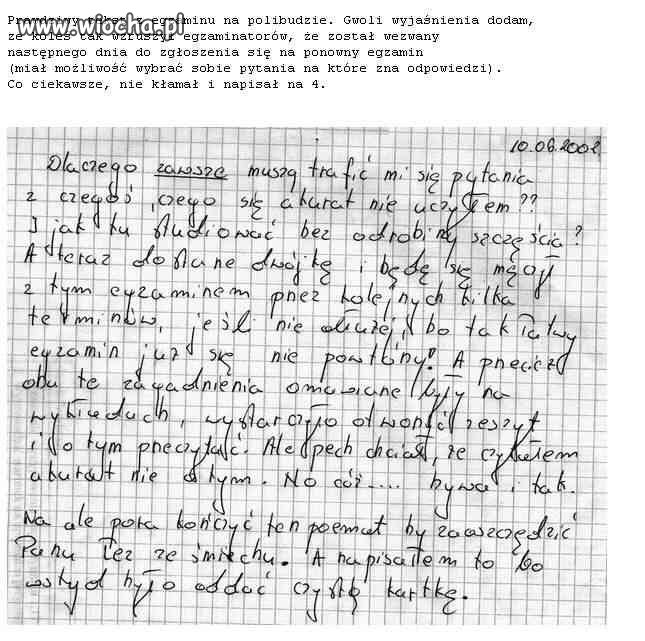 Prawdziwy tekst z egzaminu na polibudzie. Gwoli wyjaśnienia dodam,
www.wiocha.pl
że koleś tak wzruszył egzaminatorów, że został wezwany
następnego dnia do zgłoszenia się na ponowny egzamin
(miał możliwość wybrać sobie pytania na które zna odpowiedzi).
Co ciekawsze, nie kłamał i napisał na 4.
10.06.2002
Dlaczego zawsze muszą trafić mi się pytania
z czegoś, czego się akurat nie uczyłem??
I jak tu studiować bez odrobiny szczęścia?
A teraz dostane dwójkę i będę się męczył
z tym egzaminem przez kolejnych kilka
terminów, jeśli nie dłużej, bo tak łatwy
egzamin już się nie powtórzy! A przecież
obu te zagadnienia omawiane były na
wykładach, wystarczyło otworzyć zeszyt
i o tym przeczytać. Ale pech chciał, że czytałem
akurat nie o tym. No cóż.... bywa i tak.
Na ale pora kończyć ten poemat by zaoszczędzić
Panu łez ze śmiechu. A napisałem to bo
wstyd było oddać czystą kartkę.